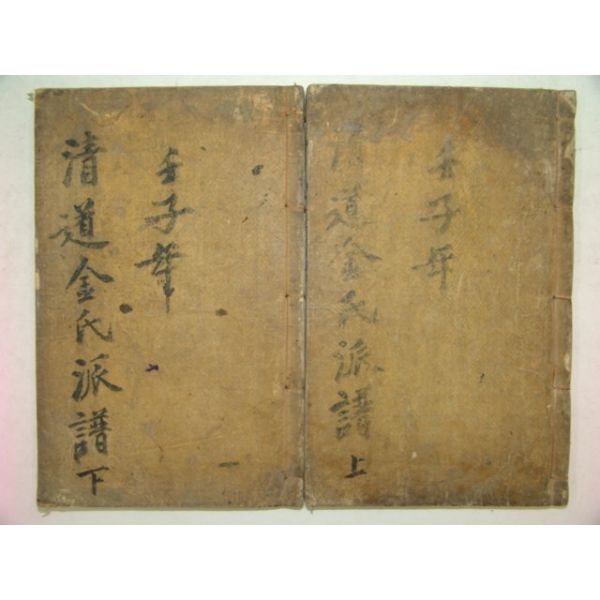 壬子年
清道金氏派譜 上
壬子年
清道金氏派譜 下